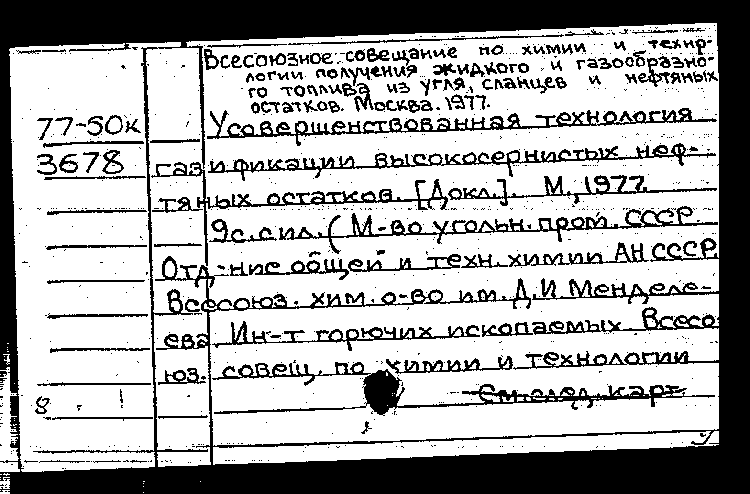 Всесоюзное совещание по химии и техно-
логии получения жидкого и газообразно-
го топлива из угля, сланцев и нефтяных
остатков. Москва. 1977.
77-50к Усовершенствованная технология
3678 газификации высокосернистых неф-
тяных остатков. [Докл.]. М., 1977.
9с. с ил. (М-во угольн. пром. СССР
Отд-ние общей и техн. химии АН СССР.
Всесоюз. хим. о-во им. Д.И Менделе-
ева. Ин-т горючих ископаемых. Всесо
юз. совещ. по химии и технологии
8 См. след. карт.